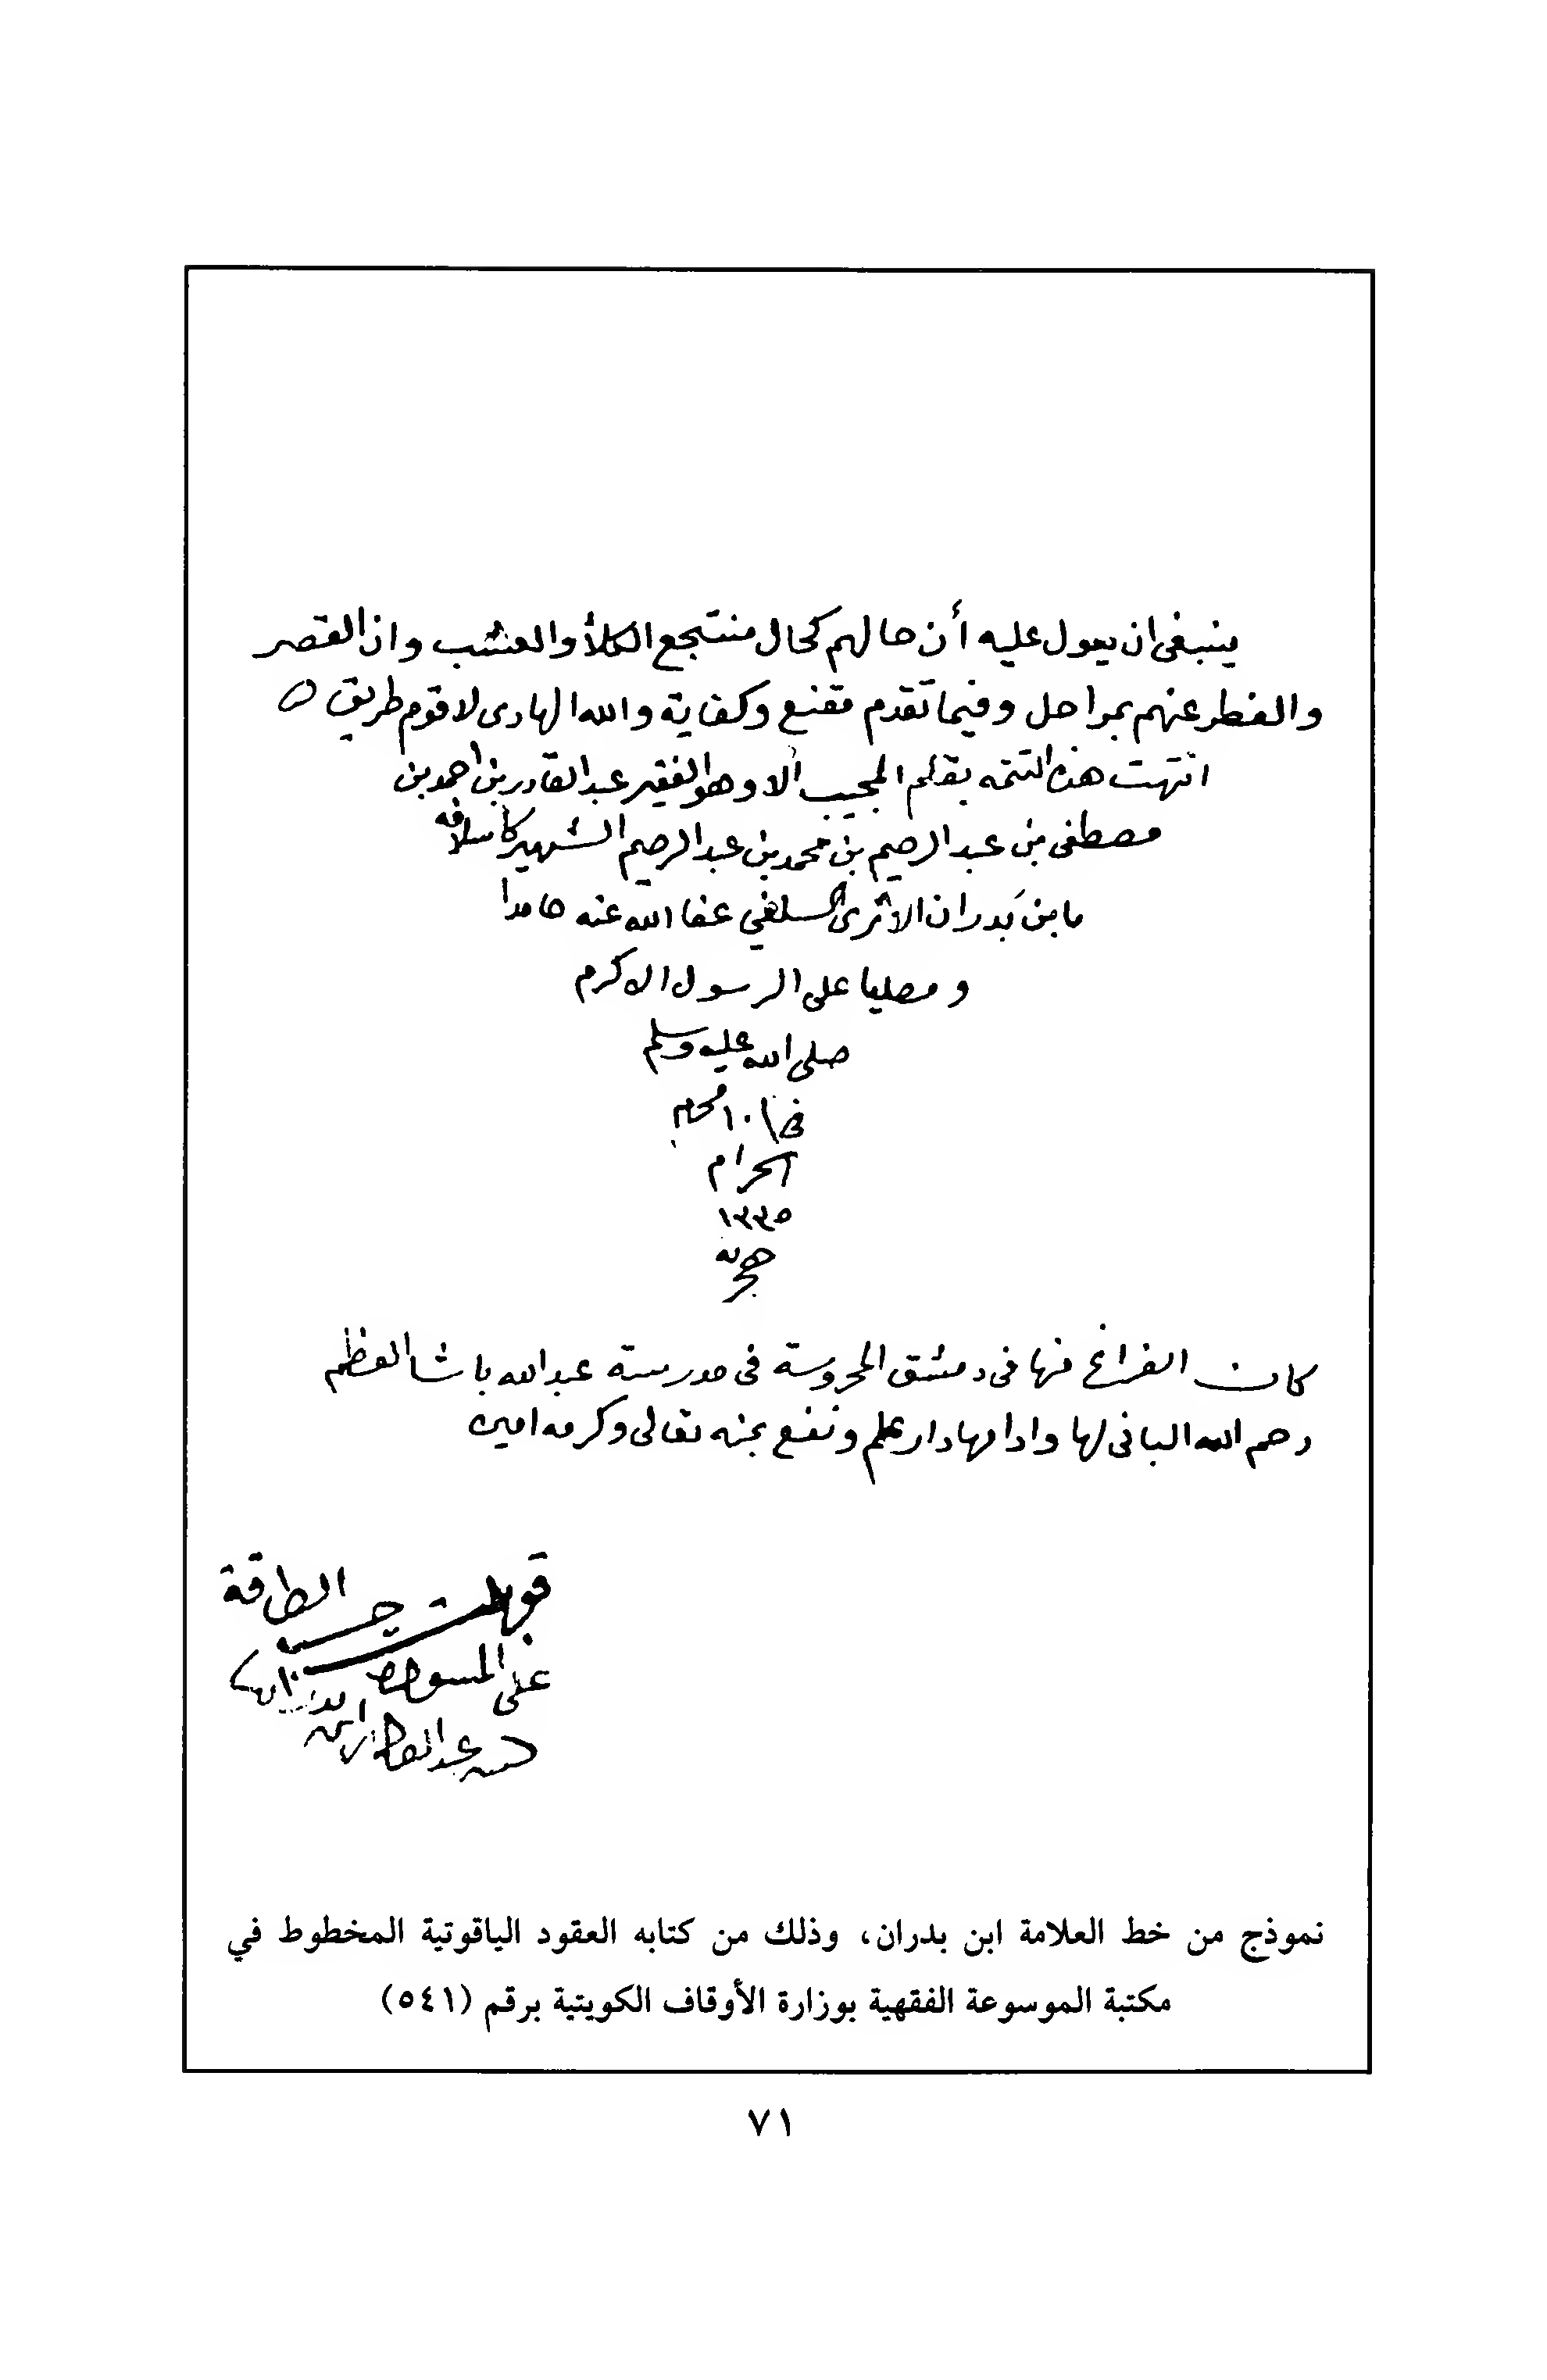 ينبغى ان يعول عليه أن حالهم كحال منتجع الكلأ والعشب وان القصر
والفطر عنهم بمراحل وفيما تقدم مقنع وكفاية والله الهادى لاقوم طريق ٥
انتهت هذه التتمه بقلم المجيب ألا وهو الفقير عبد القادر بن احمد بن
مصطفى بن عبد الرحيم بن محمد بن عبد الرحيم الشهير كاسلافه
بابن بَدران الاثرى السلفي عفا الله عنه حامدا
و مصليا على الرسول الاكرم
صلى الله عليه وسلم
في ١٠ محرم
الحرام
١٣٣٥
هجريه
كان الفراغ منها فى دمشق المحروسة فى مدرسة عبد الله باشا العظم
رحم الله البانى لها وادامها دار علم ونفع بمنه تعالى وكرمه امين
قوبلت حسب الطاقة
على المسودة
عبد القادر ابن بدران
نموذج من خط العلامة ابن بدران، وذلك من كتابه العقود الياقوتية المخطوط في
مكتبة الموسوعة الفقهية بوزارة الأوقاف الكويتية برقم (٥٤١)
٧١